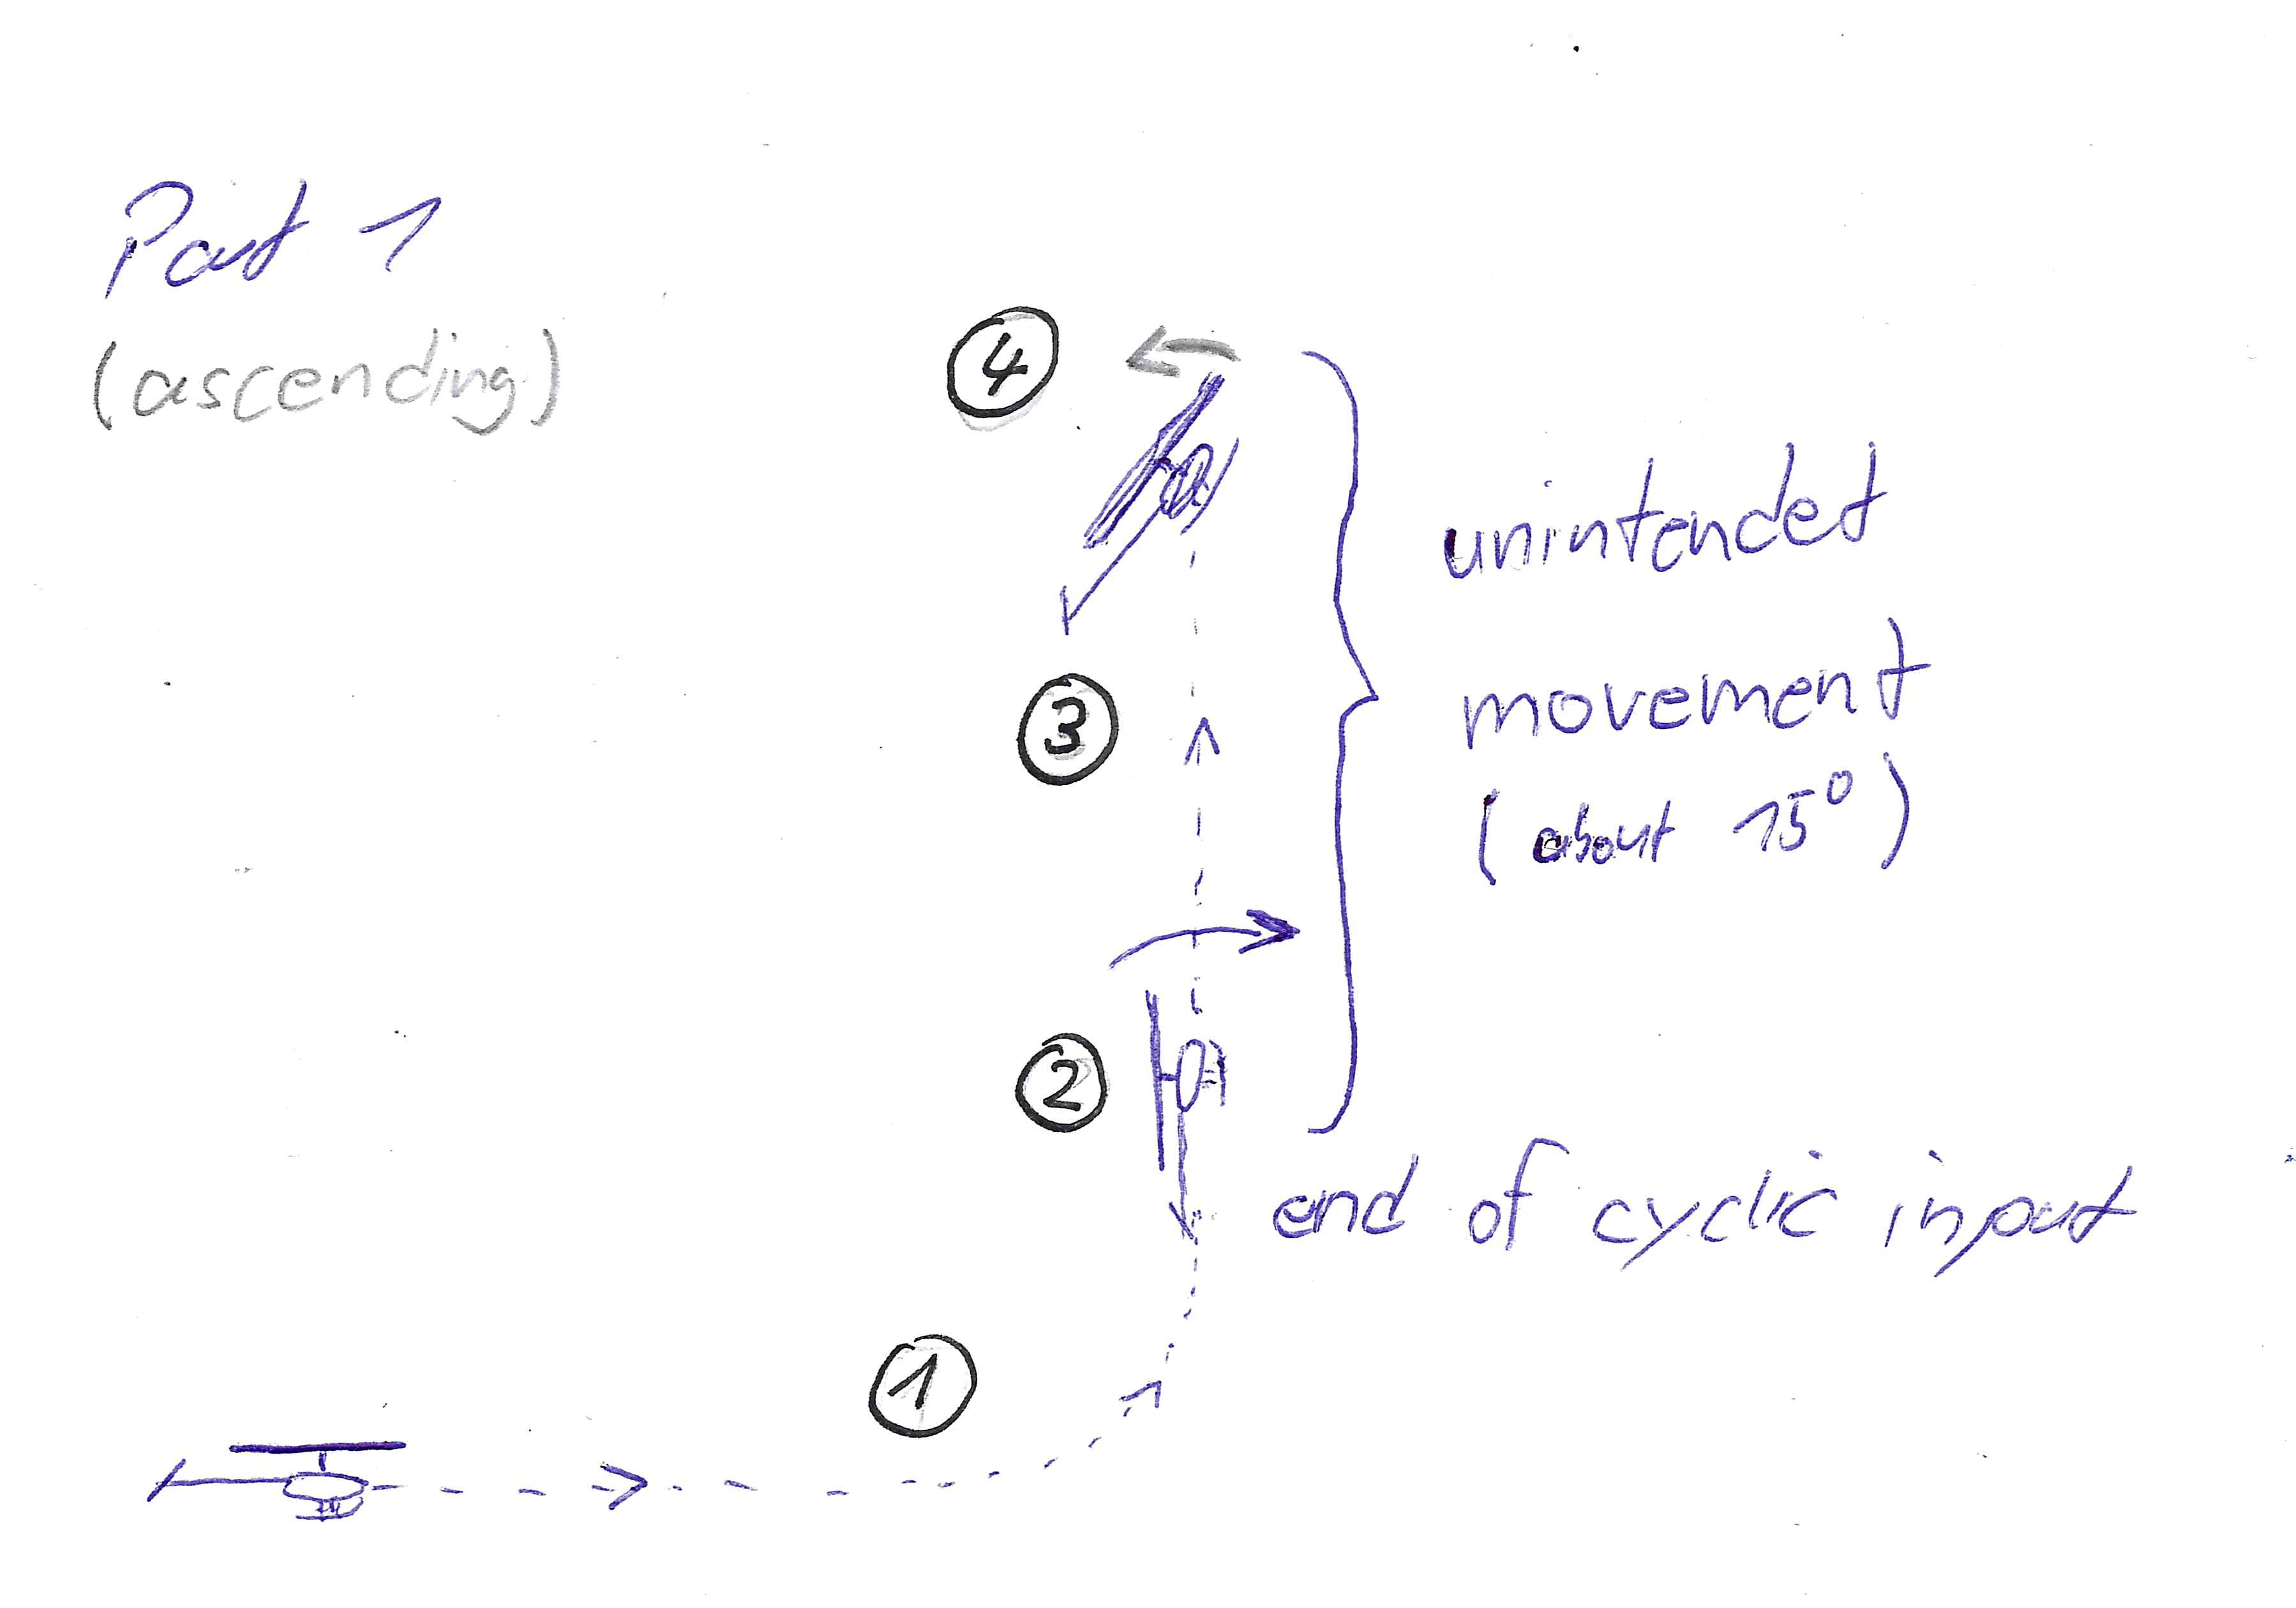 Part 1
(ascending)
4
3
2
1
unintended
movement
(about 15°)
end of cyclic input